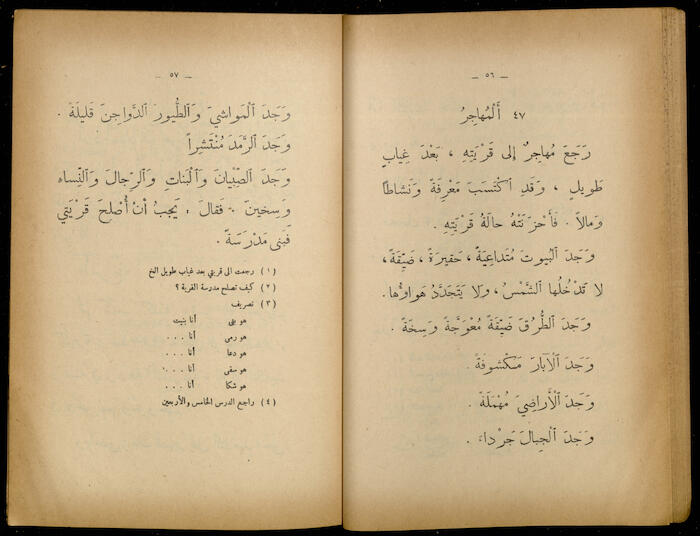 — ٥٦ —
٤٧ أَلْمُهَاجِرُ
رَجَعَ مُهاجِرٌ إلى قَرْيَتِهِ ، بَعْدَ غِيابٍ
طَويلٍ ، وَقَدِ ٱكْتَسَبَ مَعْرِفَةً وَنَشاطًا
وَمالاً . فَأَحْزَنَتْهُ حالَةُ قَرْيَتِهِ .
وَجَدَ ٱلْبُيوتَ مُتَداعِيَةً ، حَقيرَةً ، ضَيِّقَةً ،
لا تَدْخُلُها ٱلشَّمْسُ ، وَلا يَتَجَدَّدُ هَواؤُها .
وَجَدَ ٱلطُّرُقَ ضَيِّقَةً مُعْوَجَّةً وَسِخَةً .
وَجَدَ ٱلْآبارَ مَكْشوفَةً .
وَجَدَ ٱلْأَراضِيَ مُهْمَلَةً .
وَجَدَ ٱلْجِبالَ جَرْداءَ .
— ٥٧ —
وَجَدَ ٱلْمَواشِيَ وَٱلطُّيورَ ٱلدَّواجِنَ قَليلَةً .
وَجَدَ ٱلرَّمَدَ مُنْتَشِراً
وَجَدَ ٱلصِّبْيانَ وَٱلْبَناتِ وَٱلرِّجالَ وَٱلنِّساءَ
وَسِخينَ . فَقالَ : يَجِبُ أَنْ أُصْلِحَ قَرْيَتي
فَبَنى مَدْرَسَةً .
(١) رجعت الى قريتي بعد غياب طويل الخ
(٢) كيف تصلح مدرسة القرية ؟
(٣) تصريف
هو بنى أنا بنيت
هو رمى أنا . . .
هو دعا أنا . . .
هو سقى أنا . . .
هو شكا أنا . . .
(٤) راجع الدرس الخامس والأربعين